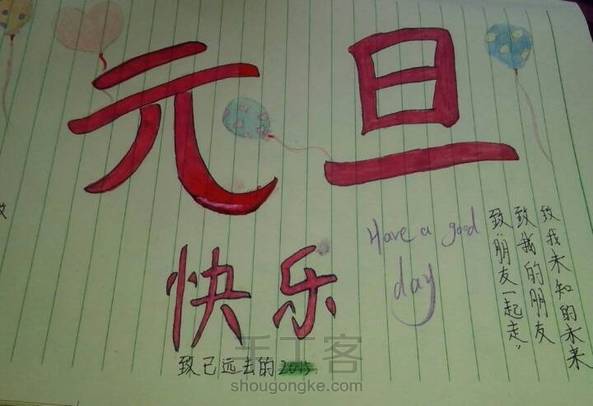 元旦
快乐
Have a good
day
致我未知的未来
致我的朋友
致:朋友一起走。
致已远去的2015
手工客
shougongke.com